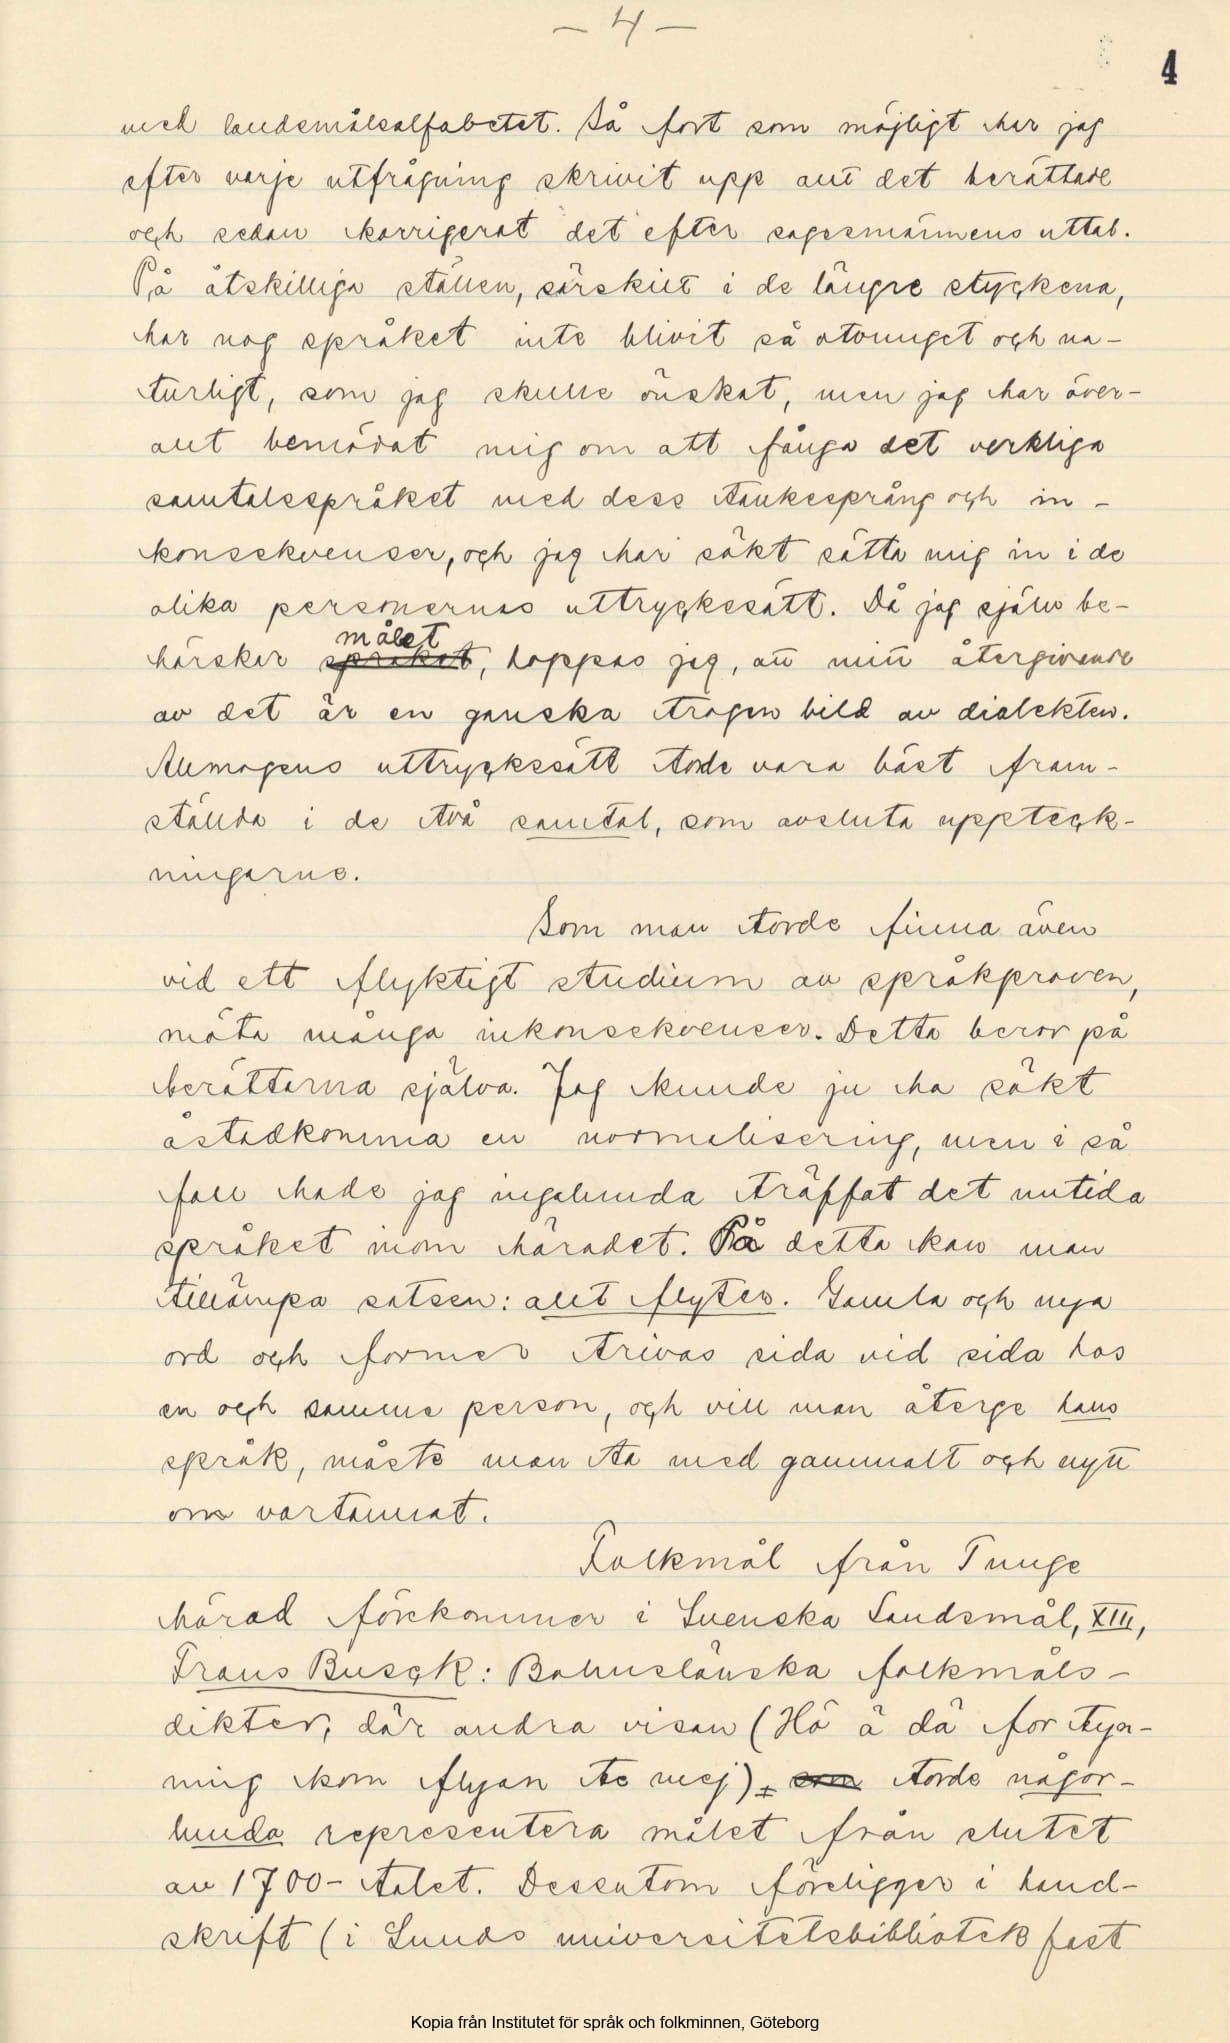 - 4 -
4
med landsmålsalfabetet. Så fort som möjligt har jag
efter varje utfrågning skrivit upp allt det berättade
och sedan korrigerat det efter sagesmännens uttal.
På åtskilliga ställen, särskilt i de längre styckena,
har nog språket inte blivit så otvunget och na-
turligt, som jag skulle önskat, men jag har över-
allt bemödat mig om att fånga det verkliga
samtalsspråket med dess tankesprång och in-
konsekvenser, och jag har sökt sätta mig in i de
olika personernas uttryckssätt. Då jag själv be-
målet
härskar språket, hoppas jag, att mitt återgivande
av det är en ganska trogen bild av dialekten.
Allmogens uttryckssätt torde vara bäst fram-
ställda i de två samtal, som avsluta uppteck-
ningarna.
Som man torde finna även
vid ett flyktigt studium av språkproven,
möta många inkonsekvenser. Detta beror på
berättarna själva. Jag kunde ju ha sökt
åstadkomma en normalisering, men i så
fall hade jag ingalunda träffat det nutida
språket inom häradet. På detta kan man
tillämpa satsen: allt flyter. Gamla och nya
ord och former trivas sida vid sida hos
en och samme person, och vill man återge hans
språk, måste man ta med gammalt och nytt
om vartannat.
Folkmål från Tunge
härad förekommer i Svenska Landsmål, XIII,
Frans Busck: Bohuslänska folkmåls-
dikter, där andra visan (Hö ä dä for tya-
ning kom flyan te mej) ± som torde någor-
lunda representera målet från slutet
av 1700-talet. Dessutom föreligger i hand-
skrift (i Lunds universitetsbibliotek fast
Kopia från Institutet för språk och folkminnen, Göteborg